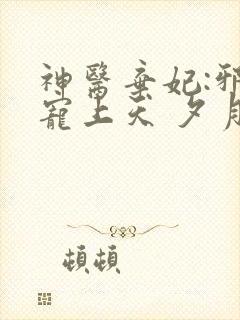 神醫棄妃:邪
寵上天 夕月
頓頓